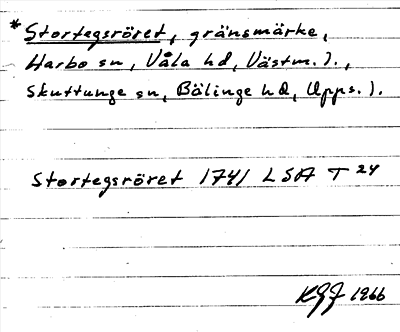 *Stortegsröret, gränsmärke,
Harbo sn, Våla hd, Västm. l.,
Skuttunge sn, Bälinge hd, Upps. l.
Stortegsröret 1741 LSA T 24
KGJ 1966